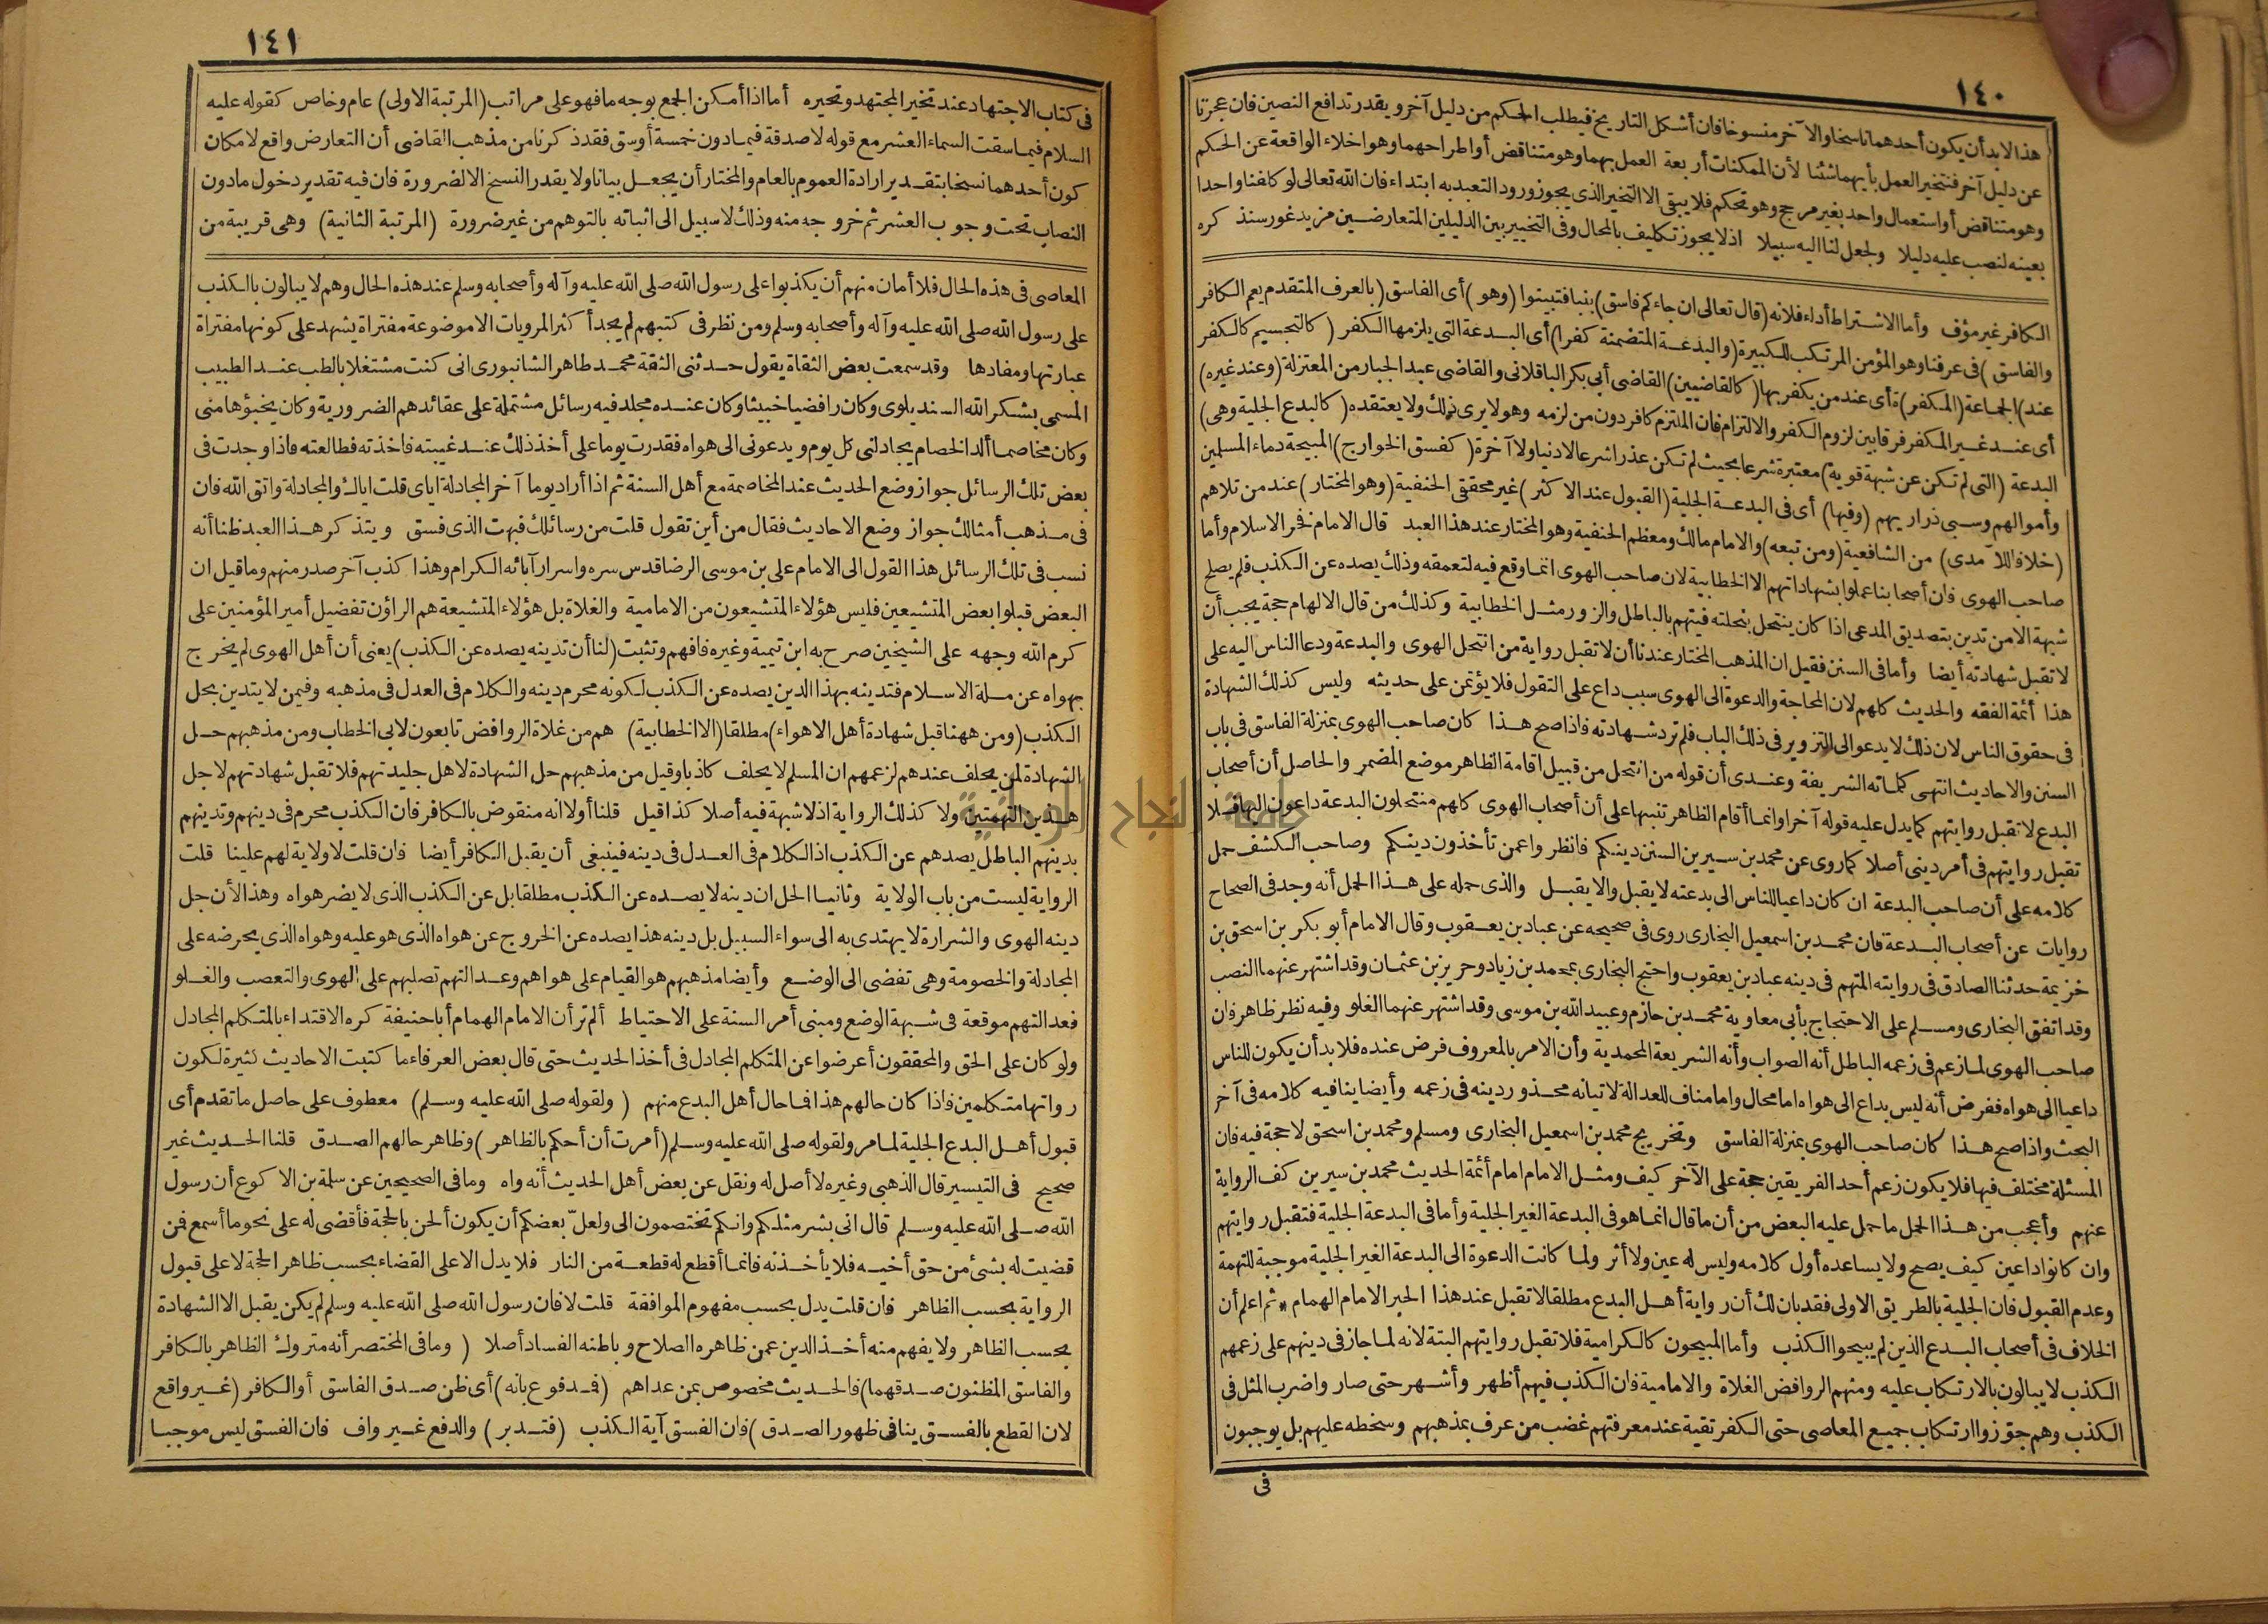 ١٤٠
هذا لابد أن يكون أحدهما ناسخا والآخر منسوخا فان أشكل التاريخ فيطلب الحكم من دليل آخر ويقدر تدافع النصين فان عجزنا
عن دليل آخر فنتخير العمل بأيهما شئنا لأن الممكنات أربعة العمل بهما وهو متناقض أو اطراحهما وهو اخلاء الواقعة عن الحكم
وهو متناقض أو استعمال واحد بغير مرجح وهو تحكم فلا يبقى الا التخير الذى يجوز ورود التعبد به ابتداء فان الله تعالى لو كلفنا واحدا
بعينه لنصب عليه دليلا ولجعل لنا اليه سبيلا اذ لا يجوز تكليف بالمحال وفى التخيير بين الدليلين المتعارضين مزيد غور سنذكره
الكافر غير مؤف وأما الاشتراط أداء فلانه (قال تعالى ان جاءكم فاسق) بنبا فتبينوا (وهو) أى الفاسق (بالعرف المتقدم يعم الكافر
والفاسق) فى عرفنا وهو المؤمن المرتكب للكبيرة (والبدعة المتضمنة كفرا) أى البدعة التى يلزمها الكفر (كالتجسيم كالكفر
عند) الجماعة (المكفر) ة أى عند من يكفر بها (كالقاضيين) القاضى أبى بكر الباقلانى والقاضى عبد الجبار من المعتزلة (وعند غيره)
أى عند غير المكفر فرقا بين لزوم الكفر والالتزام فان الملتزم كافر دون من لزمه وهو لا يرى ذلك ولا يعتقده (كالبدع الجلية وهى)
البدعة (التى لم تكن عن شبهة قوية) معتبرة شرعا بحيث لم تكن عذرا شرعا لا دنيا ولا آخرة (كفسق الخوارج) المبيحة دماء المسلمين
وأموالهم وسبى ذراريهم (وفيها) أى فى البدعة الجلية (القبول عند الاكثر) غير محققى الحنفية (وهو المختار) عند من تلاهم
(خلافا للآمدى) من الشافعية (ومن تبعه) والامام مالك ومعظم الحنفية وهو المختار عند هذا العبد قال الامام فخر الاسلام وأما
صاحب الهوى فان أصحابنا عملوا بشهاداتهم الا الخطابية لان صاحب الهوى انما وقع فيه لتعمقه وذلك يصده عن الكذب فلم يصلح
شبهة الا من تدين بتصديق المدعى اذا كان ينتحل بنحلته فيتهم بالباطل والزور مثل الخطابية وكذلك من قال الالهام حجة يجب أن
لا تقبل شهادته أيضا وأما فى السنن فقيل ان المذهب المختار عندنا أن لا تقبل رواية من انتحل الهوى والبدعة ودعا الناس اليه على
هذا أئمة الفقه والحديث كلهم لان المحاجة والدعوة الى الهوى سبب داع على التقول فلا يؤتمن على حديثه وليس كذلك الشهادة
فى حقوق الناس لان ذلك لا يدعو الى التزوير فى ذلك الباب فلم ترد شهادته فاذا صح هذا كان صاحب الهوى بمنزلة الفاسق فى باب
السنن والاحاديث انتهى كلماته الشريفة وعندى أن قوله من انتحل من قبيل اقامة الظاهر موضع المضمر والحاصل أن أصحاب
البدع لا تقبل روايتهم كما يدل عليه قوله آخرا وانما أقام الظاهر تنبيها على أن أصحاب الهوى كلهم منتحلون البدعة داعون اليها فلا
تقبل روايتهم فى أمر دينى أصلا كما روى عن محمد بن سيرين السنن دينكم فانظروا عمن تأخذون دينكم وصاحب الكشف حمل
كلامه على أن صاحب البدعة ان كان داعيا للناس الى بدعته لا يقبل والا يقبل والذى حمله على هذا الحمل أنه وجد فى الصحاح
روايات عن أصحاب البدعة فان محمد بن اسمعيل البخارى روى فى صحيحه عن عباد بن يعقوب وقال الامام أبو بكر بن اسحق بن
خزيمة حدثنا الصادق فى روايته المتهم فى دينه عباد بن يعقوب واحتج البخارى بمحمد بن زياد وحريز بن عثمان وقد اشتهر عنهما النصب
وقد اتفق البخارى ومسلم على الاحتجاج بأبى معاوية محمد بن حازم وعبيد الله بن موسى وقد اشتهر عنهما الغلو وفيه نظر ظاهر فان
صاحب الهوى لما زعم فى زعمه الباطل أنه الصواب وأنه الشريعة المحمدية وأن الامر بالمعروف فرض عنده فلا بد أن يكون للناس
داعيا الى هواه ففرض أنه ليس بداع الى هواه اما محال واما مناف للعدالة لاتيانه محذور دينه فى زعمه وأيضا ينافيه كلامه فى آخر
البحث واذا صح هذا كان صاحب الهوى بمنزلة الفاسق وتخريج محمد بن اسمعيل البخارى ومسلم ومحمد بن اسحق لا حجة فيه فان
المسئلة مختلف فيها فلا يكون زعم أحد الفريقين حجة على الآخر كيف ومثل الامام امام أئمة الحديث محمد بن سيرين كف الرواية
عنهم وأعجب من هذا الحمل ما حمل عليه البعض من أن ما قال انما هو فى البدعة الغير الجلية وأما فى البدعة الجلية فتقبل روايتهم
وان كانوا داعين كيف يصح ولا يساعده أول كلامه وليس له عين ولا أثر ولما كانت الدعوة الى البدعة الغير الجلية موجبة للتهمة
وعدم القبول فان الجلية بالطريق الاولى فقد بان لك أن رواية أهل البدع مطلقا لا تقبل عند هذا الحبر الامام الهمام * ثم اعلم أن
الخلاف فى أصحاب البدع الذين لم يبيحوا الكذب وأما المبيحون كالكرامية فلا تقبل روايتهم البتة لانه لما جاز فى دينهم على زعمهم
الكذب لا يبالون بالارتكاب عليه ومنهم الروافض الغلاة والامامية فان الكذب فيهم أظهر وأشهر حتى صار واضرب المثل فى
الكذب وهم جوزوا ارتكاب جميع المعاصى حتى الكفر تقية عند معرفتهم غضب من عرف بمذهبهم وسخطه عليهم بل يوجبون
فى
١٤١
فى كتاب الاجتهاد عند تخير المجتهد وتحيره أما اذا أمكن الجمع بوجه ما فهو على مراتب (المرتبة الاولى) عام وخاص كقوله عليه
السلام فيما سقت السماء العشر مع قوله لا صدقة فيما دون خمسة أوسق فقد ذكرنا من مذهب القاضى أن التعارض واقع لامكان
كون أحدهما نسخا بتقدير ارادة العموم بالعام والمختار أن يجعل بيانا ولا يقدر النسخ الا لضرورة فان فيه تقدير دخول ما دون
النصاب تحت وجوب العشر ثم خروجه منه وذلك لا سبيل الى اثباته بالتوهم من غير ضرورة (المرتبة الثانية) وهى قريبة من
المعاصى فى هذه الحال فلا أمان منهم أن يكذبوا على رسول الله صلى الله عليه وآله وأصحابه وسلم عند هذه الحال وهم لا يبالون بالكذب
على رسول الله صلى الله عليه وآله وأصحابه وسلم ومن نظر فى كتبهم لم يجد أكثر المرويات الا موضوعة مفتراة يشهد على كونها مفتراة
عبارتها ومفادها وقد سمعت بعض الثقاة يقول حدثنى الثقة محمد طاهر الشانبورى انى كنت مشتغلا بالطب عند الطبيب
المسمى بشكر الله السنديلوى وكان رافضيا خبيثا وكان عنده مجلد فيه رسائل مشتملة على عقائدهم الضرورية وكان يخبؤها منى
وكان مخاصما ألد الخصام يجادلنى كل يوم ويدعونى الى هواه فقدرت يوما على أخذ ذلك عند غيبته فاخذته فطالعته فاذا وجدت فى
بعض تلك الرسائل جواز وضع الحديث عند المخاصمة مع أهل السنة ثم اذا أراد يوما آخر المجادلة اياى قلت اياك والمجادلة واتق الله فان
فى مذهب أمثالك جواز وضع الاحاديث فقال من أين تقول قلت من رسائلك فبهت الذى فسق ويتذكر هذا العبد ظنا أنه
نسب فى تلك الرسائل هذا القول الى الامام على بن موسى الرضا قدس سره واسرار آبائه الكرام وهذا كذب آخر صدر منهم وما قيل ان
البعض قبلوا بعض المتشيعين فليس هؤلاء المتشيعون من الامامية والغلاة بل هؤلاء المتشيعة هم الراؤن تفضيل أمير المؤمنين على
كرم الله وجهه على الشيخين صرح به ابن تيمية وغيره فافهم وتثبت (لنا أن تدينه يصده عن الكذب) يعنى أن أهل الهوى لم يخرج
بهواه عن ملة الاسلام فتدينه بهذا الدين يصده عن الكذب لكونه محرم دينه والكلام فى العدل فى مذهبه وفيمن لا يتدين بحل
الكذب (ومن ههنا قبل شهادة أهل الاهواء) مطلقا (الا الخطابية) هم من غلاة الروافض تابعون لابى الخطاب ومن مذهبهم حل
الشهادة لمن يحلف عندهم لزعمهم ان المسلم لا يحلف كاذبا وقيل من مذهبهم حل الشهادة لاهل جليدتهم فلا تقبل شهادتهم لاجل
هذين التهمتين ولا كذلك الرواية اذ لا شبهة فيه أصلا كذا قيل قلنا أولا انه منقوض بالكافر فان الكذب محرم فى دينهم وتدينهم
بدينهم الباطل يصدهم عن الكذب اذ الكلام فى العدل فى دينه فينبغى أن يقبل الكافر أيضا فان قلت لا ولاية لهم علينا قلت
الرواية ليست من باب الولاية وثانيا الحل ان دينه لا يصده عن الكذب مطلقا بل عن الكذب الذى لا يضر هواه وهذا لأن جل
دينه الهوى والشرارة لا يهتدى به الى سواء السبيل بل دينه هذا يصده عن الخروج عن هواه الذى هو عليه وهواه الذى يحرضه على
المجادلة والخصومة وهى تفضى الى الوضع وأيضا مذهبهم هو القيام على هواهم وعدالتهم تصلبهم على الهوى والتعصب والغلو
فعدالتهم موقعة فى شبهة الوضع ومبنى أمر السنة على الاحتياط ألم تر أن الامام الهمام أبا حنيفة كره الاقتداء بالمتكلم المجادل
ولو كان على الحق والمحققون أعرضوا عن المتكلم المجادل فى أخذ الحديث حتى قال بعض العرفاء ما كتبت الاحاديث كثيرة لكون
رواتها متكلمين فاذا كان حالهم هذا فما حال أهل البدع منهم (ولقوله صلى الله عليه وسلم) معطوف على حاصل ما تقدم أى
قبول أهل البدع الجلية لما مر ولقوله صلى الله عليه وسلم (أمرت أن أحكم بالظاهر) وظاهر حالهم الصدق قلنا الحديث غير
صحيح فى التيسير قال الذهبى وغيره لا أصل له ونقل عن بعض أهل الحديث أنه واه وما فى الصحيحين عن سلمة بن الاكوع أن رسول
الله صلى الله عليه وسلم قال انى بشر مثلكم وانكم تختصمون الى ولعلّ بعضكم أن يكون ألحن بالحجة فأقضى له على نحو ما أسمع فمن
قضيت له بشئ من حق أخيه فلا يأخذنه فانما أقطع له قطعة من النار فلا يدل الا على القضاء بحسب ظاهر الحجة لا على قبول
الرواية بحسب الظاهر فان قلت يدل بحسب مفهوم الموافقة قلت لا فان رسول الله صلى الله عليه وسلم لم يكن يقبل الا الشهادة
بحسب الظاهر ولا يفهم منه أخذ الدين عمن ظاهره الصلاح وباطنه الفساد أصلا (وما فى المختصر أنه متروك الظاهر بالكافر
والفاسق المظنون صدقهما) فالحديث مخصوص بمن عداهم (فمدفوع بانه) أى ظن صدق الفاسق أو الكافر (غير واقع
لان القطع بالفسق ينافى ظهور الصدق) فان الفسق آية الكذب (فتدبر) والدفع غير واف فان الفسق ليس موجبا
جامعة النجاح الوطنية